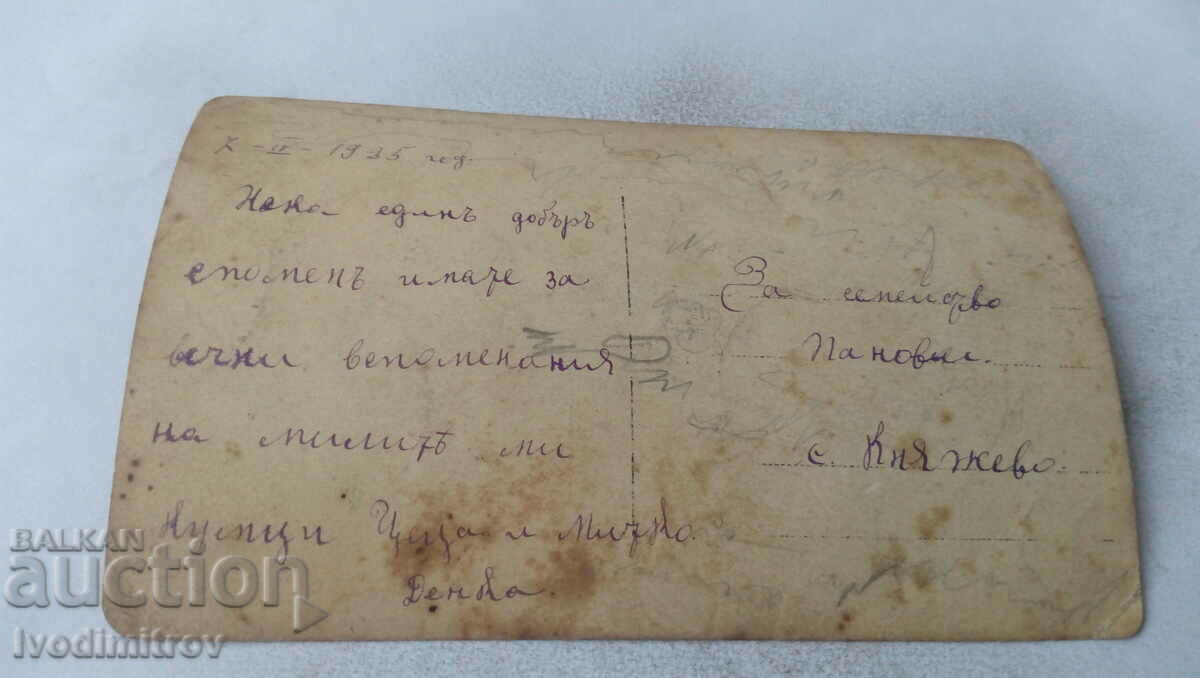 7 - II - 1935 год.
Нека единъ добъръ
споменъ имаче за
вечни вспоменания
на милитѣ ми
Кумци Цеца и Мичко
Денка.
За семейство
Панови.
с. Княжево.
BALKAN
auction
Ivodimitrov